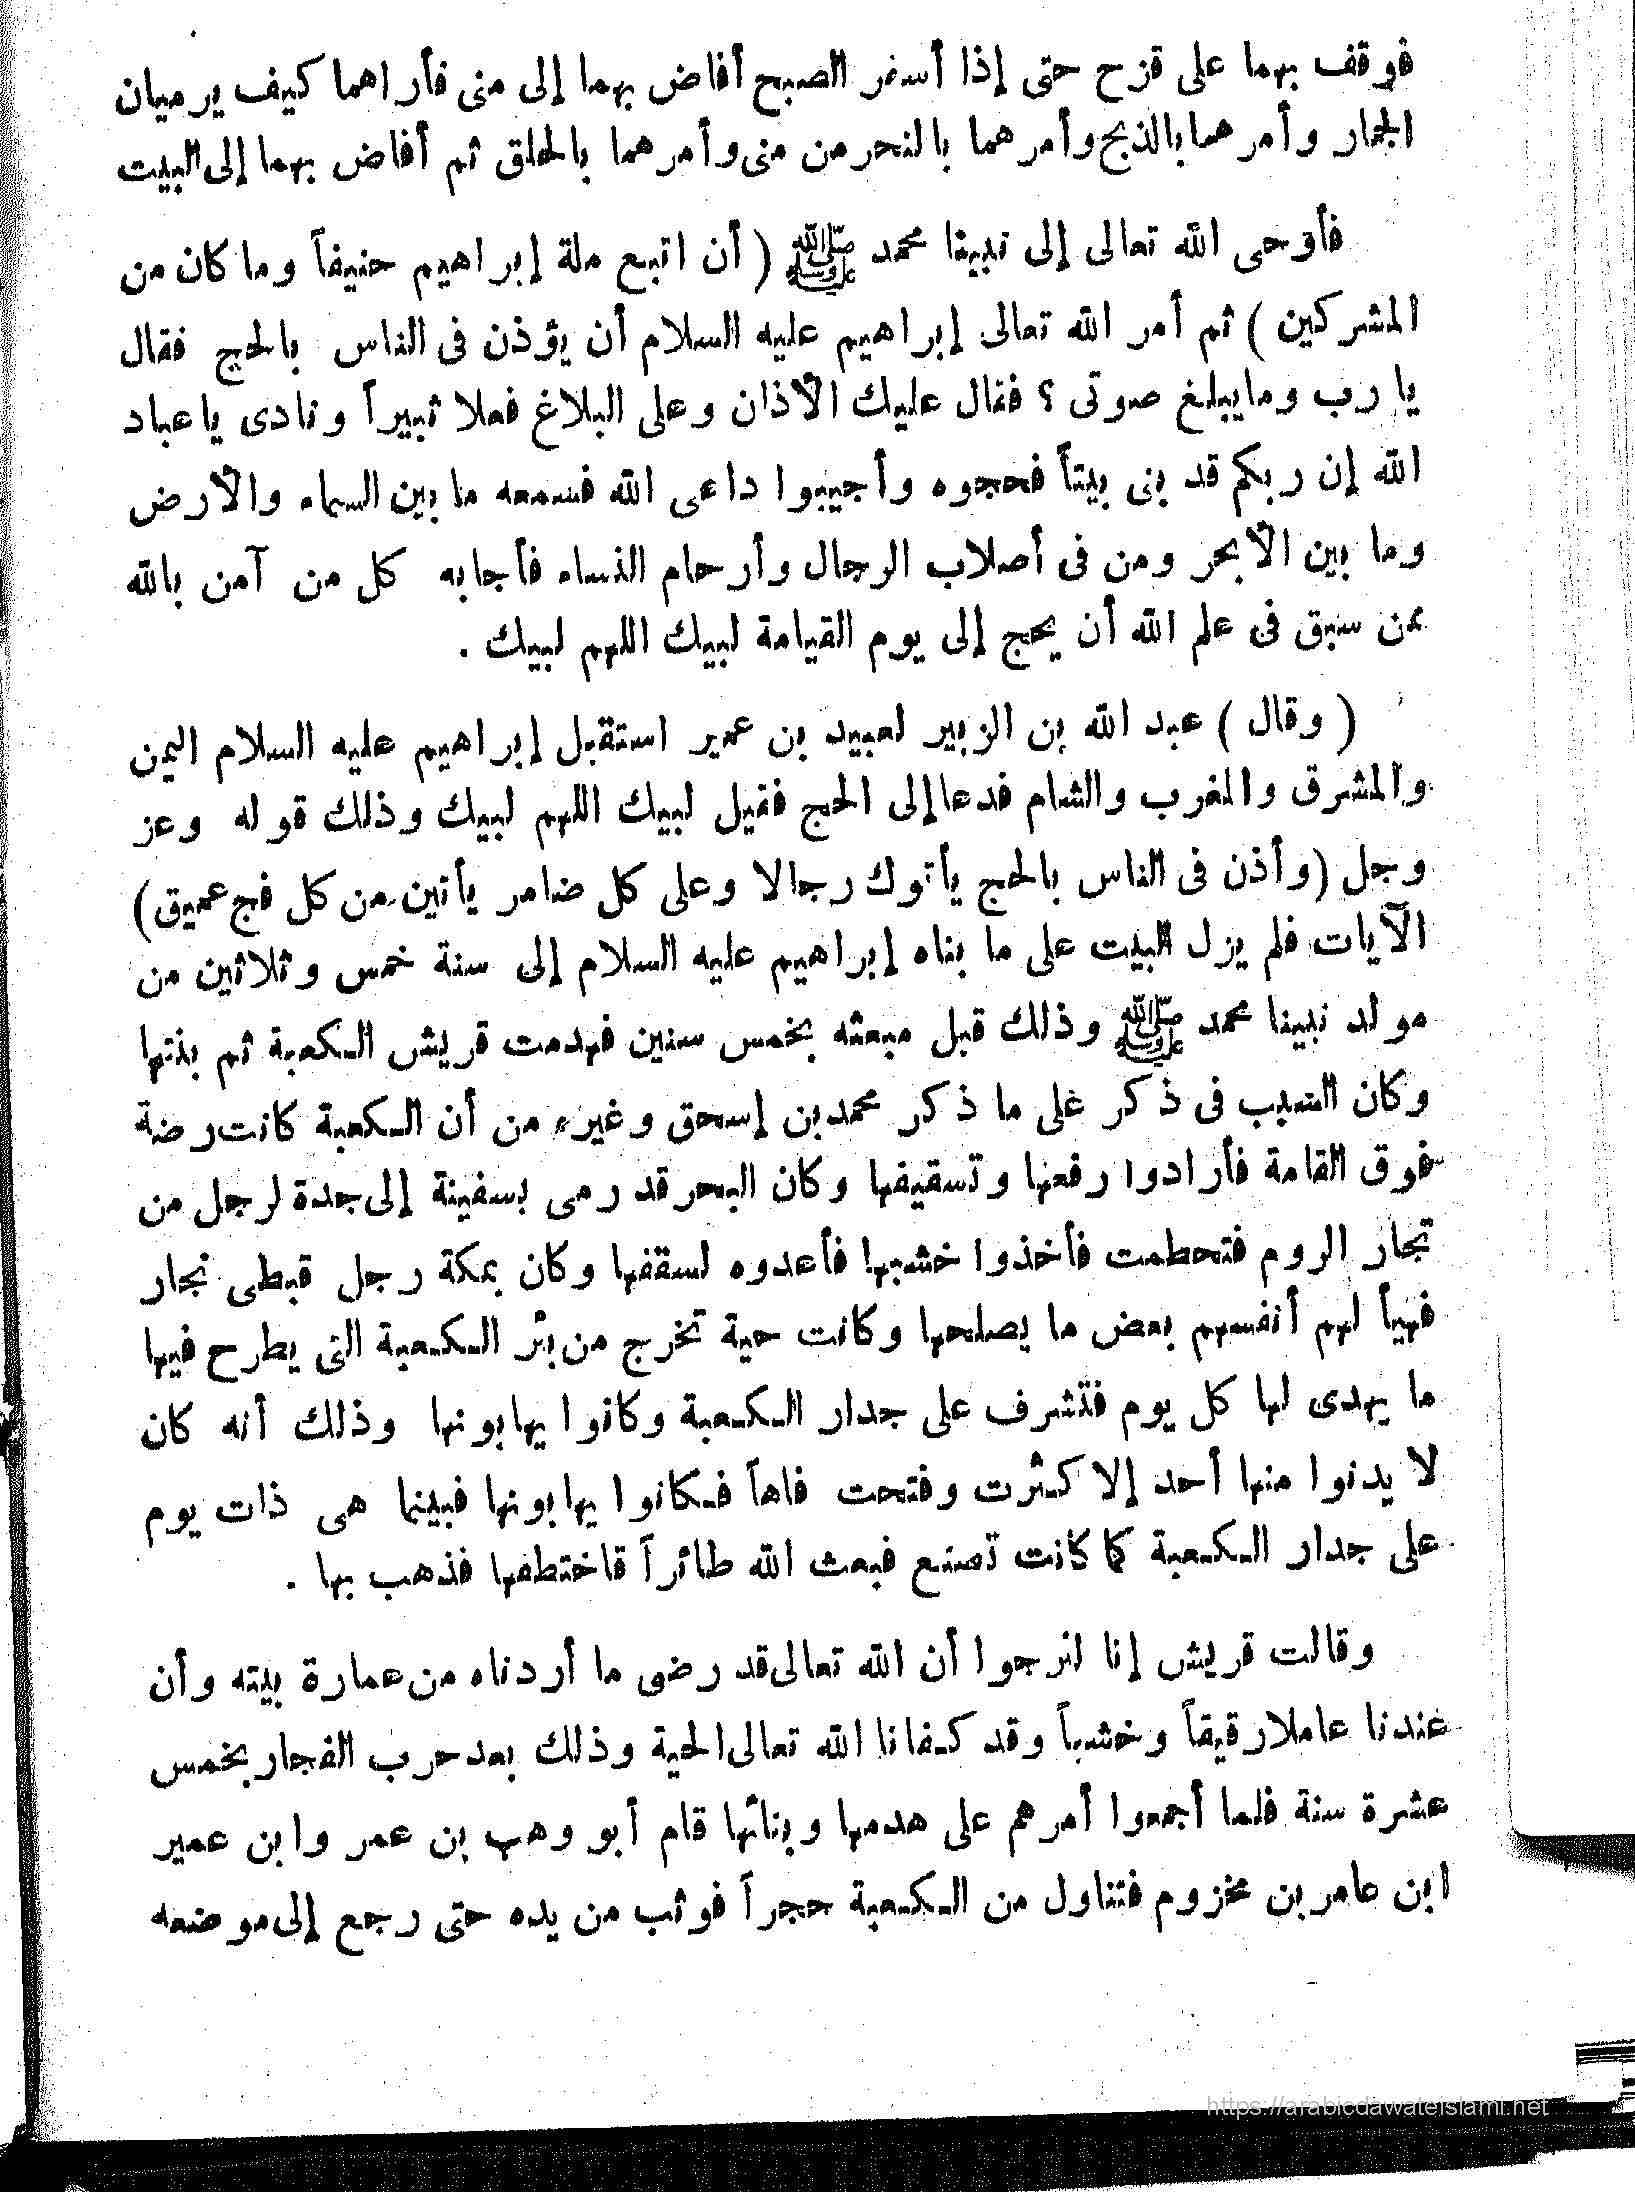 فوقف بهما على قزح حتى إذا أسفر الصبح أفاض بهما إلى منى فأراهما كيف يرميان
الجمار وأمرهما بالذبح وأمرهما بالنحر من منى وأمرهما بالحلق ثم أفاض بهما إلى البيت
فأوحى الله تعالى إلى نبينا محمد ﷺ ( أن اتبع ملة إبراهيم حنيفاً وما كان من
المشركين ) ثم أمر الله تعالى إبراهيم عليه السلام أن يؤذن فى الناس بالحج فقال
يا رب وما يبلغ صوتى ؟ فقال عليك الأذان وعلى البلاغ فعلا ثبيراً ونادى يا عباد
الله إن ربكم قد بنى بيتاً فحجوه وأجيبوا داعى الله فسمعه ما بين السماء والأرض
وما بين الأبحر ومن فى أصلاب الرجال وأرحام النساء فأجابه كل من آمن بالله
ممن سبق فى علم الله أن يحج إلى يوم القيامة لبيك اللهم لبيك .
( وقال ) عبد الله بن الزبير لعبيد بن عمير استقبل إبراهيم عليه السلام اليمن
والمشرق والمغرب والشام فدعا إلى الحج فقيل لبيك اللهم لبيك وذلك قوله وعز
وجل (وأذن فى الناس بالحج يأتوك رجالا وعلى كل ضامر يأتين من كل فج عميق)
الآيات فلم يزل البيت على ما بناه إبراهيم عليه السلام إلى سنة خمس وثلاثين من
مولد نبينا محمد ﷺ وذلك قبل مبعثه بخمس سنين فهدمت قريش الكعبة ثم بنتها
وكان السبب فى ذكر على ما ذكر محمد بن إسحق وغيره من أن الكعبة كانت رضة
فوق القامة فأرادوا رفعها وتسقيفها وكان البحر قد رمى بسفينة إلى جدة لرجل من
تجار الروم فتحطمت فأخذوا خشبها فأعدوه لسقفها وكان بمكة رجل قبطى نجار
فهيأ لهم أنفسهم بعض ما يصلحها وكانت حية تخرج من بئر الكعبة التى يطرح فيها
ما يهدى لها كل يوم فتشرف على جدار الكعبة وكانوا يهابونها وذلك أنه كان
لا يدنوا منها أحد إلا كثرت وفتحت فاهاً فكانوا يهابونها فبينما هى ذات يوم
على جدار الكعبة كما كانت تصنع فبعث الله طائراً قاختطفها فذهب بها .
وقالت قريش إنا لنرجوا أن الله تعالى قد رضى ما أردناه من عمارة بيته وأن
عندنا عاملا رقيقاً وخشباً وقد كفانا الله تعالى الحية وذلك بعد حرب الفجار بخمس
عشرة سنة فلما أجمعوا أمرهم على هدمها وبنائها قام أبو وهب بن عمر وابن عمير
ابن عامر بن مخزوم فتناول من الكعبة حجراً فوثب من يده حتى رجع إلى موضعه
https://arabicdawateislami.net